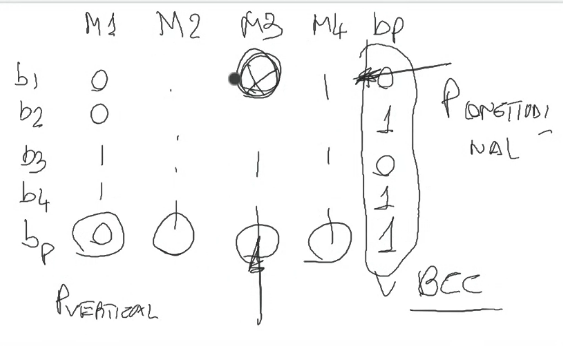 M1 M2 M3 M4 bp
b1 0 1 0
b2 0 1
b3 1 1 1 0
b4 1 1
bp 0 1 1 1 1
PLONGITUDI
NAL
PVERTICAL
BCC